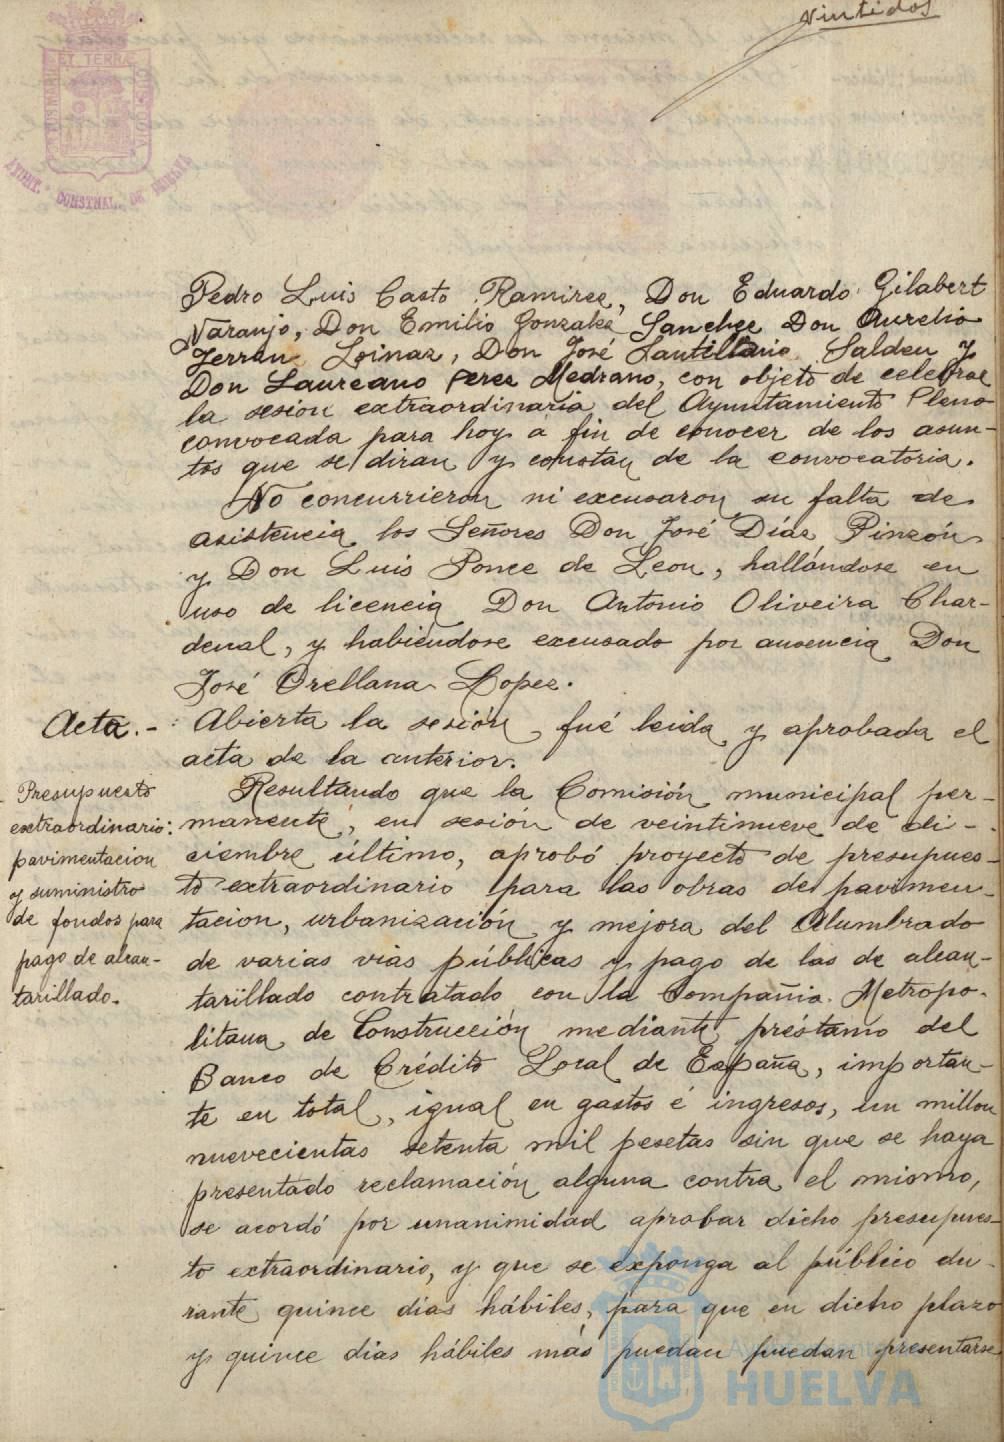 Vintidos
AYUNT. CONSTNAL. DE HUELVA
Pedro Luis Casto Ramirez, Don Eduardo Gilabert
Naranjo, Don Emilio Gonzalez Sanchez Don Aurelio
Terran Loinaz, Don José Santillario Salden y
Don Laureano Perez Medrano, con objeto de celebrar
la sesion extraordinaria del Ayuntamiento Pleno
convocada para hoy a fin de conocer de los asun-
tos que se diran y constan de la convocatoria.
No concurrieron ni excusaron su falta de
asistencia los Señores Don José Díaz Pinzón
y Don Luis Ponce de Leon, hallándose en
uso de licencia Don Antonio Oliveira Char-
denal, y habiendose excusado por ausencia Don
José Orellana Lopez.
Acta.- Abierta la sesión, fué leida y aprobada el
acta de la anterior.
Presupuesto
extraordinario:
pavimentacion
y suministro
de fondos para
pago de alcan-
tarillado.
Resultando que la Comisión municipal per-
manente, en sesión de veintinueve de di-
ciembre último, aprobó proyecto de presupues-
to extraordinario para las obras de pavimen-
tacion, urbanización y mejora del Alumbrado
de varias vias públicas y pago de las de alcan-
tarillado contratado con la Compañia Metropo-
litana de Construcción mediante préstamo del
Banco de Crédito Local de España, importan-
te en total, igual en gastos é ingresos, un millon
nuevecientas setenta mil pesetas sin que se haya
presentado reclamación alguna contra el mismo,
se acordó por unanimidad aprobar dicho presupues-
to extraordinario, y que se exponga al público du-
rante quince dias hábiles, para que en dicho plazo
y quince dias hábiles más puedan puedan presentarse
Ayuntamiento
HUELVA